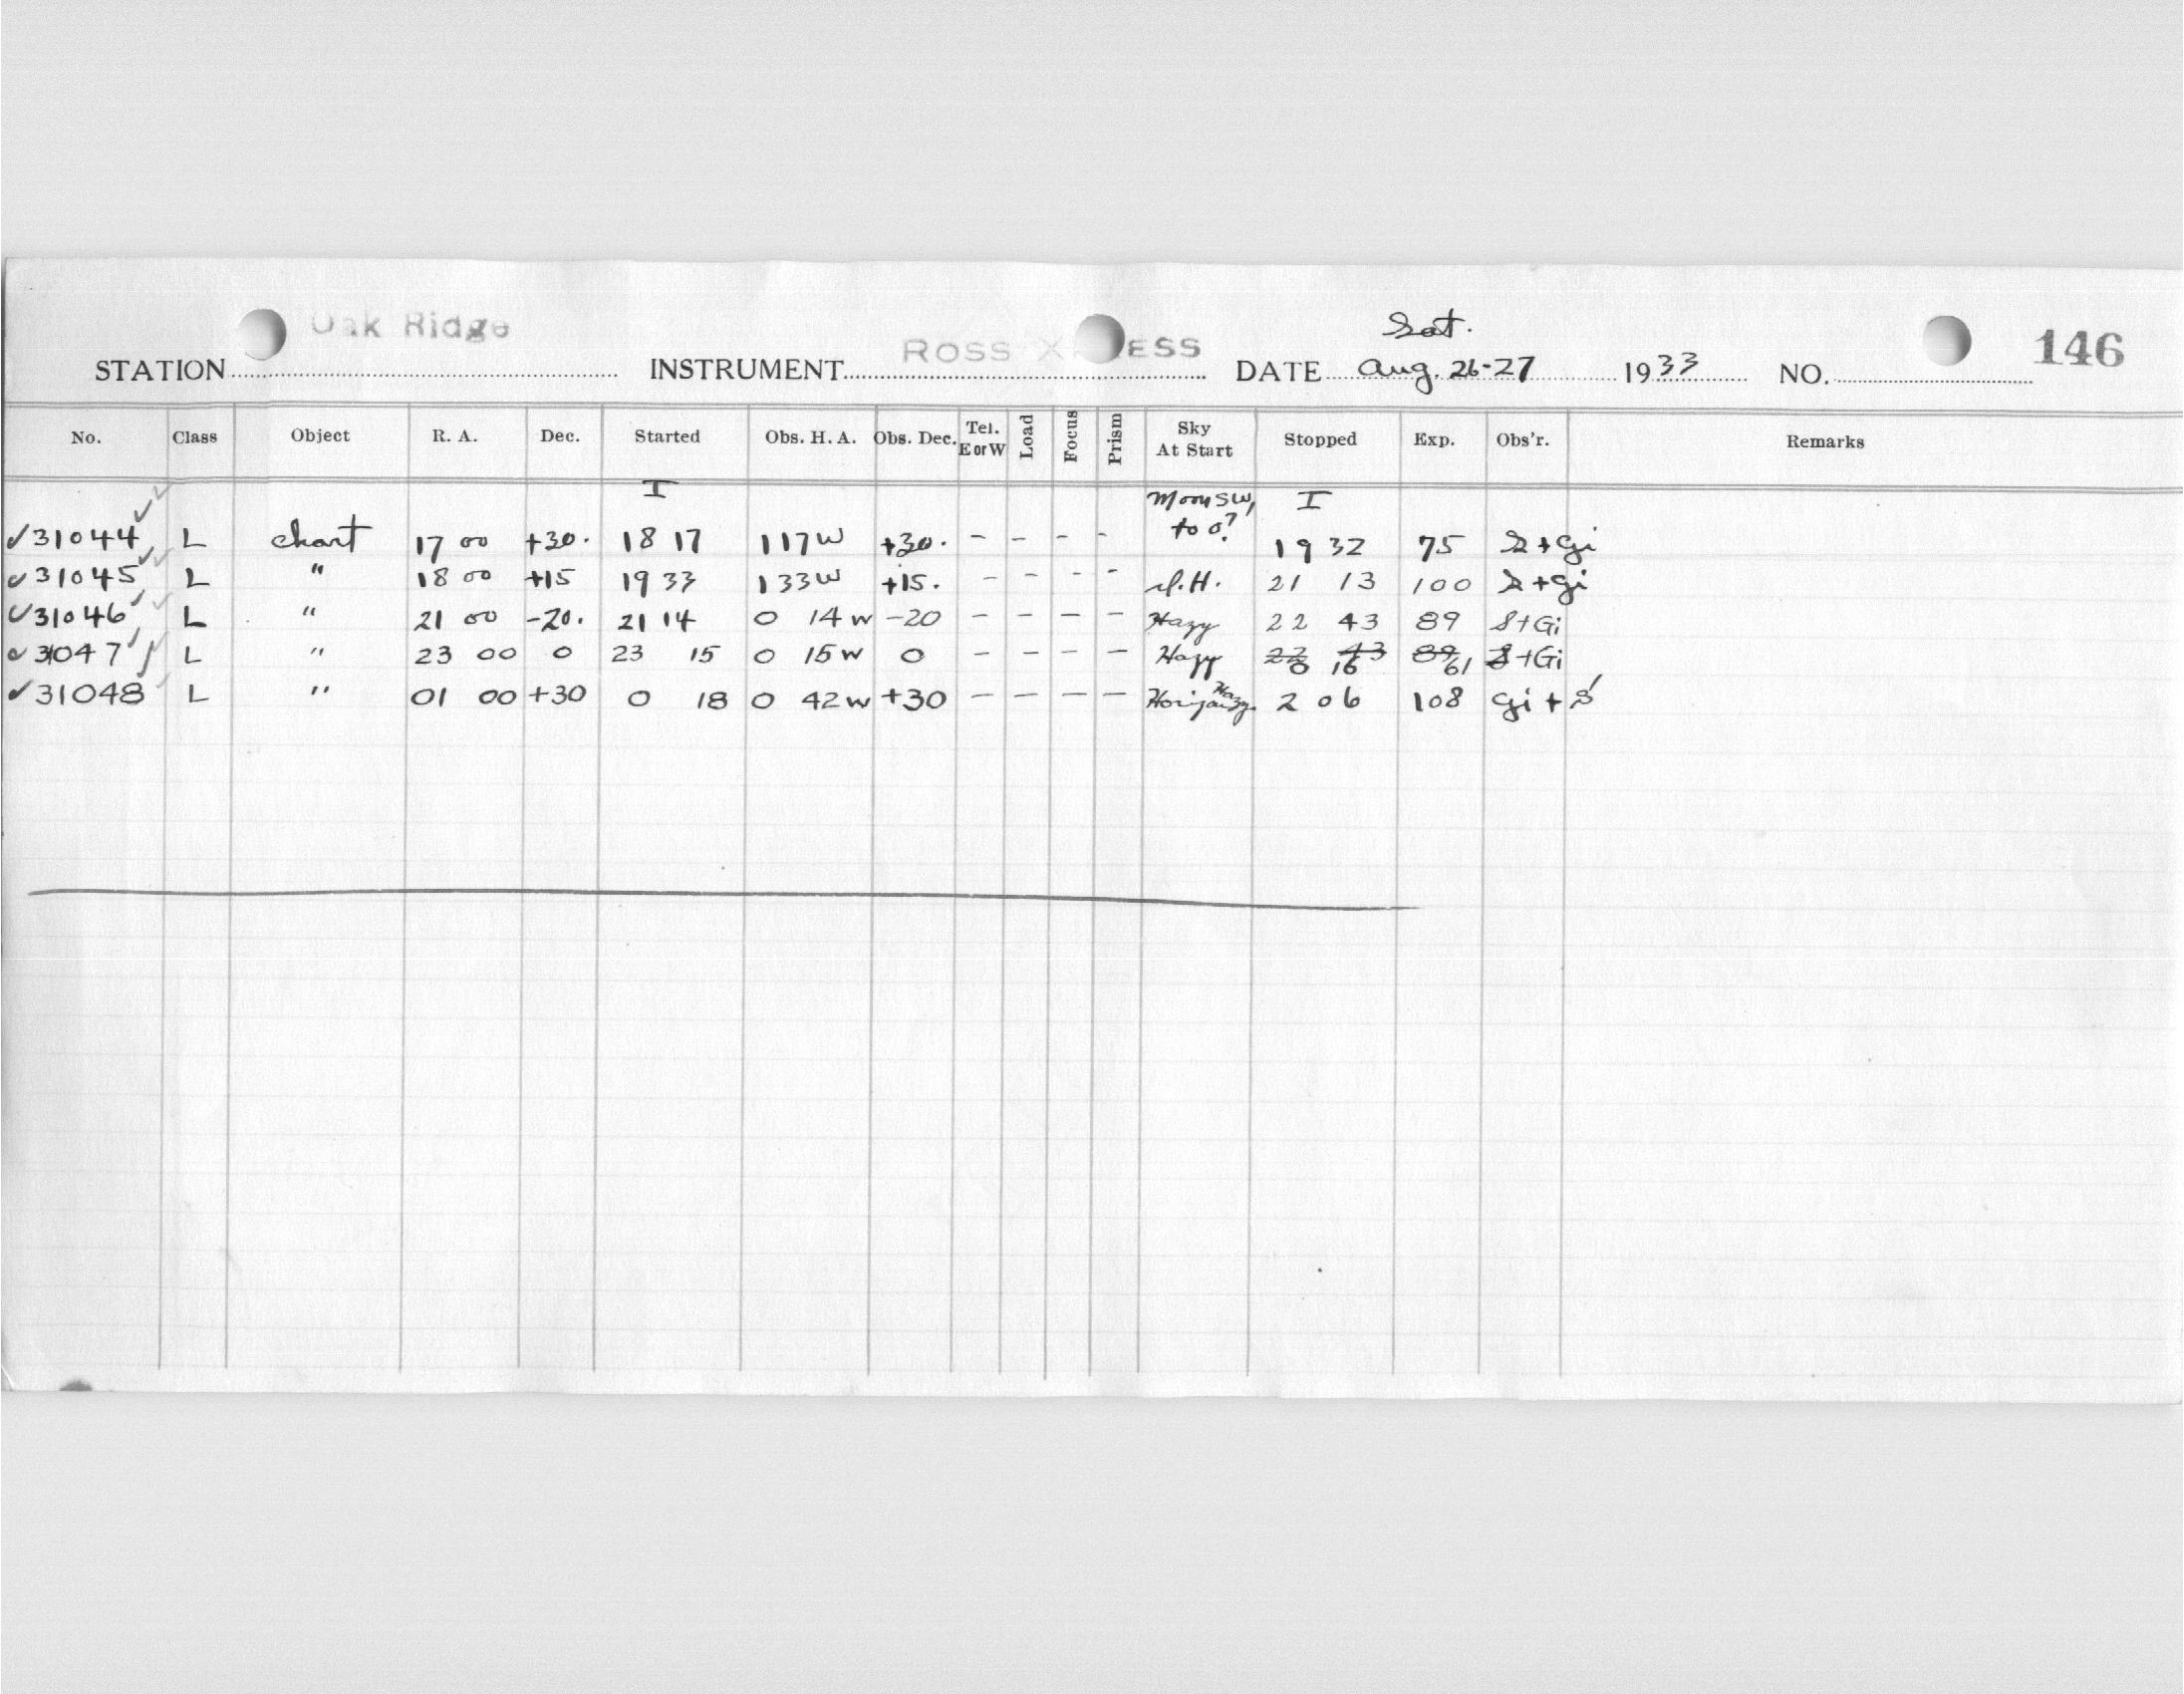 Oak Ridge
Sat.
STATION INSTRUMENT ROSS X ESS DATE Aug. 26-27 1933 NO. 146
No. Class Object R. A. Dec. Started Obs. H. A. Obs. Dec. Tel. E or W Load Focus Prism Sky At Start Stopped Exp. Obs'r. Remarks
I Moon SW, I
31044 L chart 17 00 +30. 18 17 1 17 W +30. - - - - to 0? 19 32 75 S + Gi
31045 L " 18 00 +15 19 33 1 33 W +15. - - - - H. 21 13 100 S + Gi
31046 L " 21 00 -20. 21 14 0 14 W -20 - - - - Hazy 22 43 89 S + Gi
31047 L " 23 00 0 23 15 0 15 W 0 - - - - Hazy 22 43 0 16 89 61 S + Gi
31048 L " 01 00 +30 0 18 0 42 W +30 - - - - Horizon Hazy. 2 06 108 Gi + S